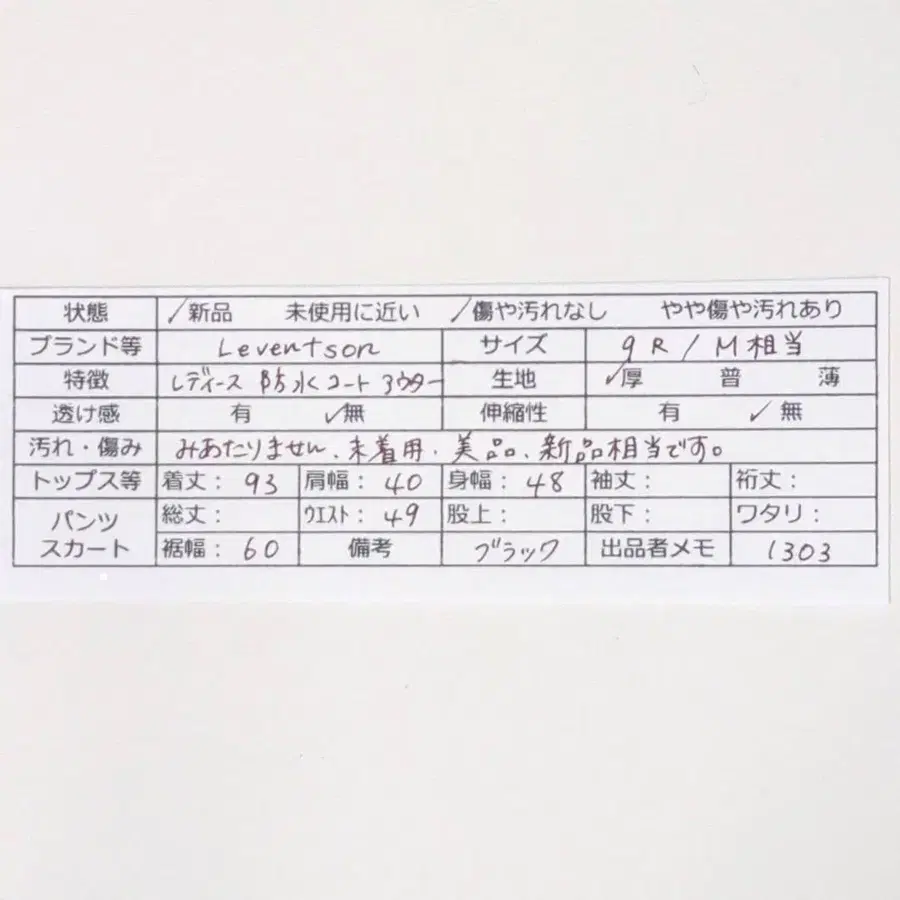 状態 ✓新品 未使用に近い ✓傷や汚れなし やや傷や汚れあり
ブランド等 Leventson サイズ 9R/M相当
特徴 レディース 防水コート アウター 生地 ✓厚 普 薄
透け感 有 ✓無 伸縮性 有 ✓無
汚れ・傷み みあたりません、未着用・美品、新品相当です。
トップス等 着丈：93 肩幅：40 身幅：48 袖丈： 裄丈：
パンツ スカート 総丈： ウエスト：49 股上： 股下： ワタリ：
裾幅：60 備考 ブラック 出品者メモ 1303